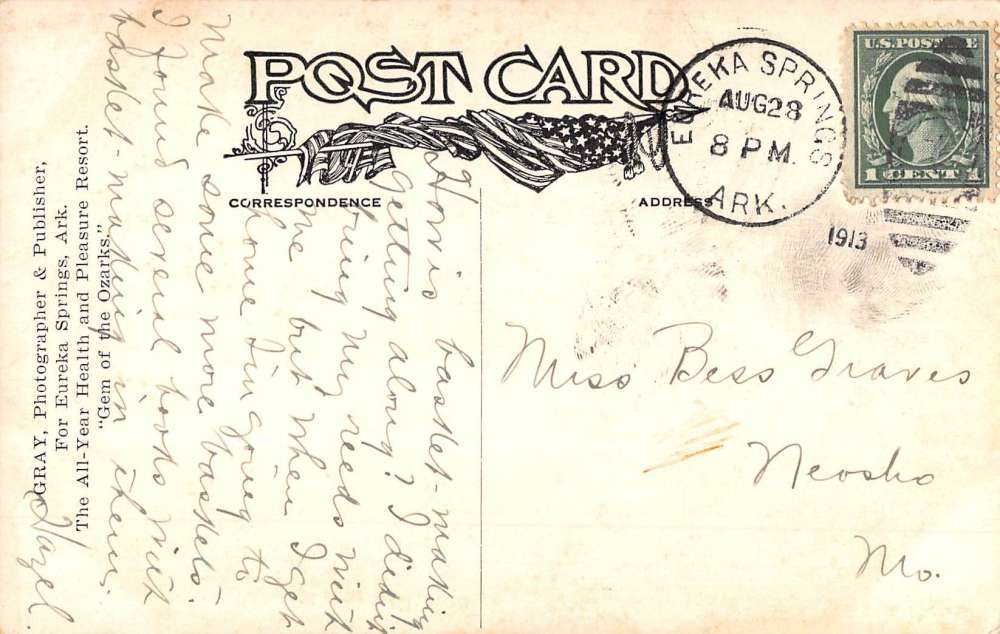 POST CARD
CORRESPONDENCE
ADDRESS
EUREKA SPRINGS
AUG 28
8 PM.
ARK.
1913
U.S. POSTAGE
1 CENT 1
How is basket-making
getting along? I didn't
bring my reeds with
me but when I get
home I'm going to
make some more baskets.
I found several books with
basket-making in them.
Hazel.
Miss Bess Graves
Neosho
Mo.
GRAY, Photographer & Publisher,
For Eureka Springs, Ark.
The All-Year Health and Pleasure Resort.
"Gem of the Ozarks."